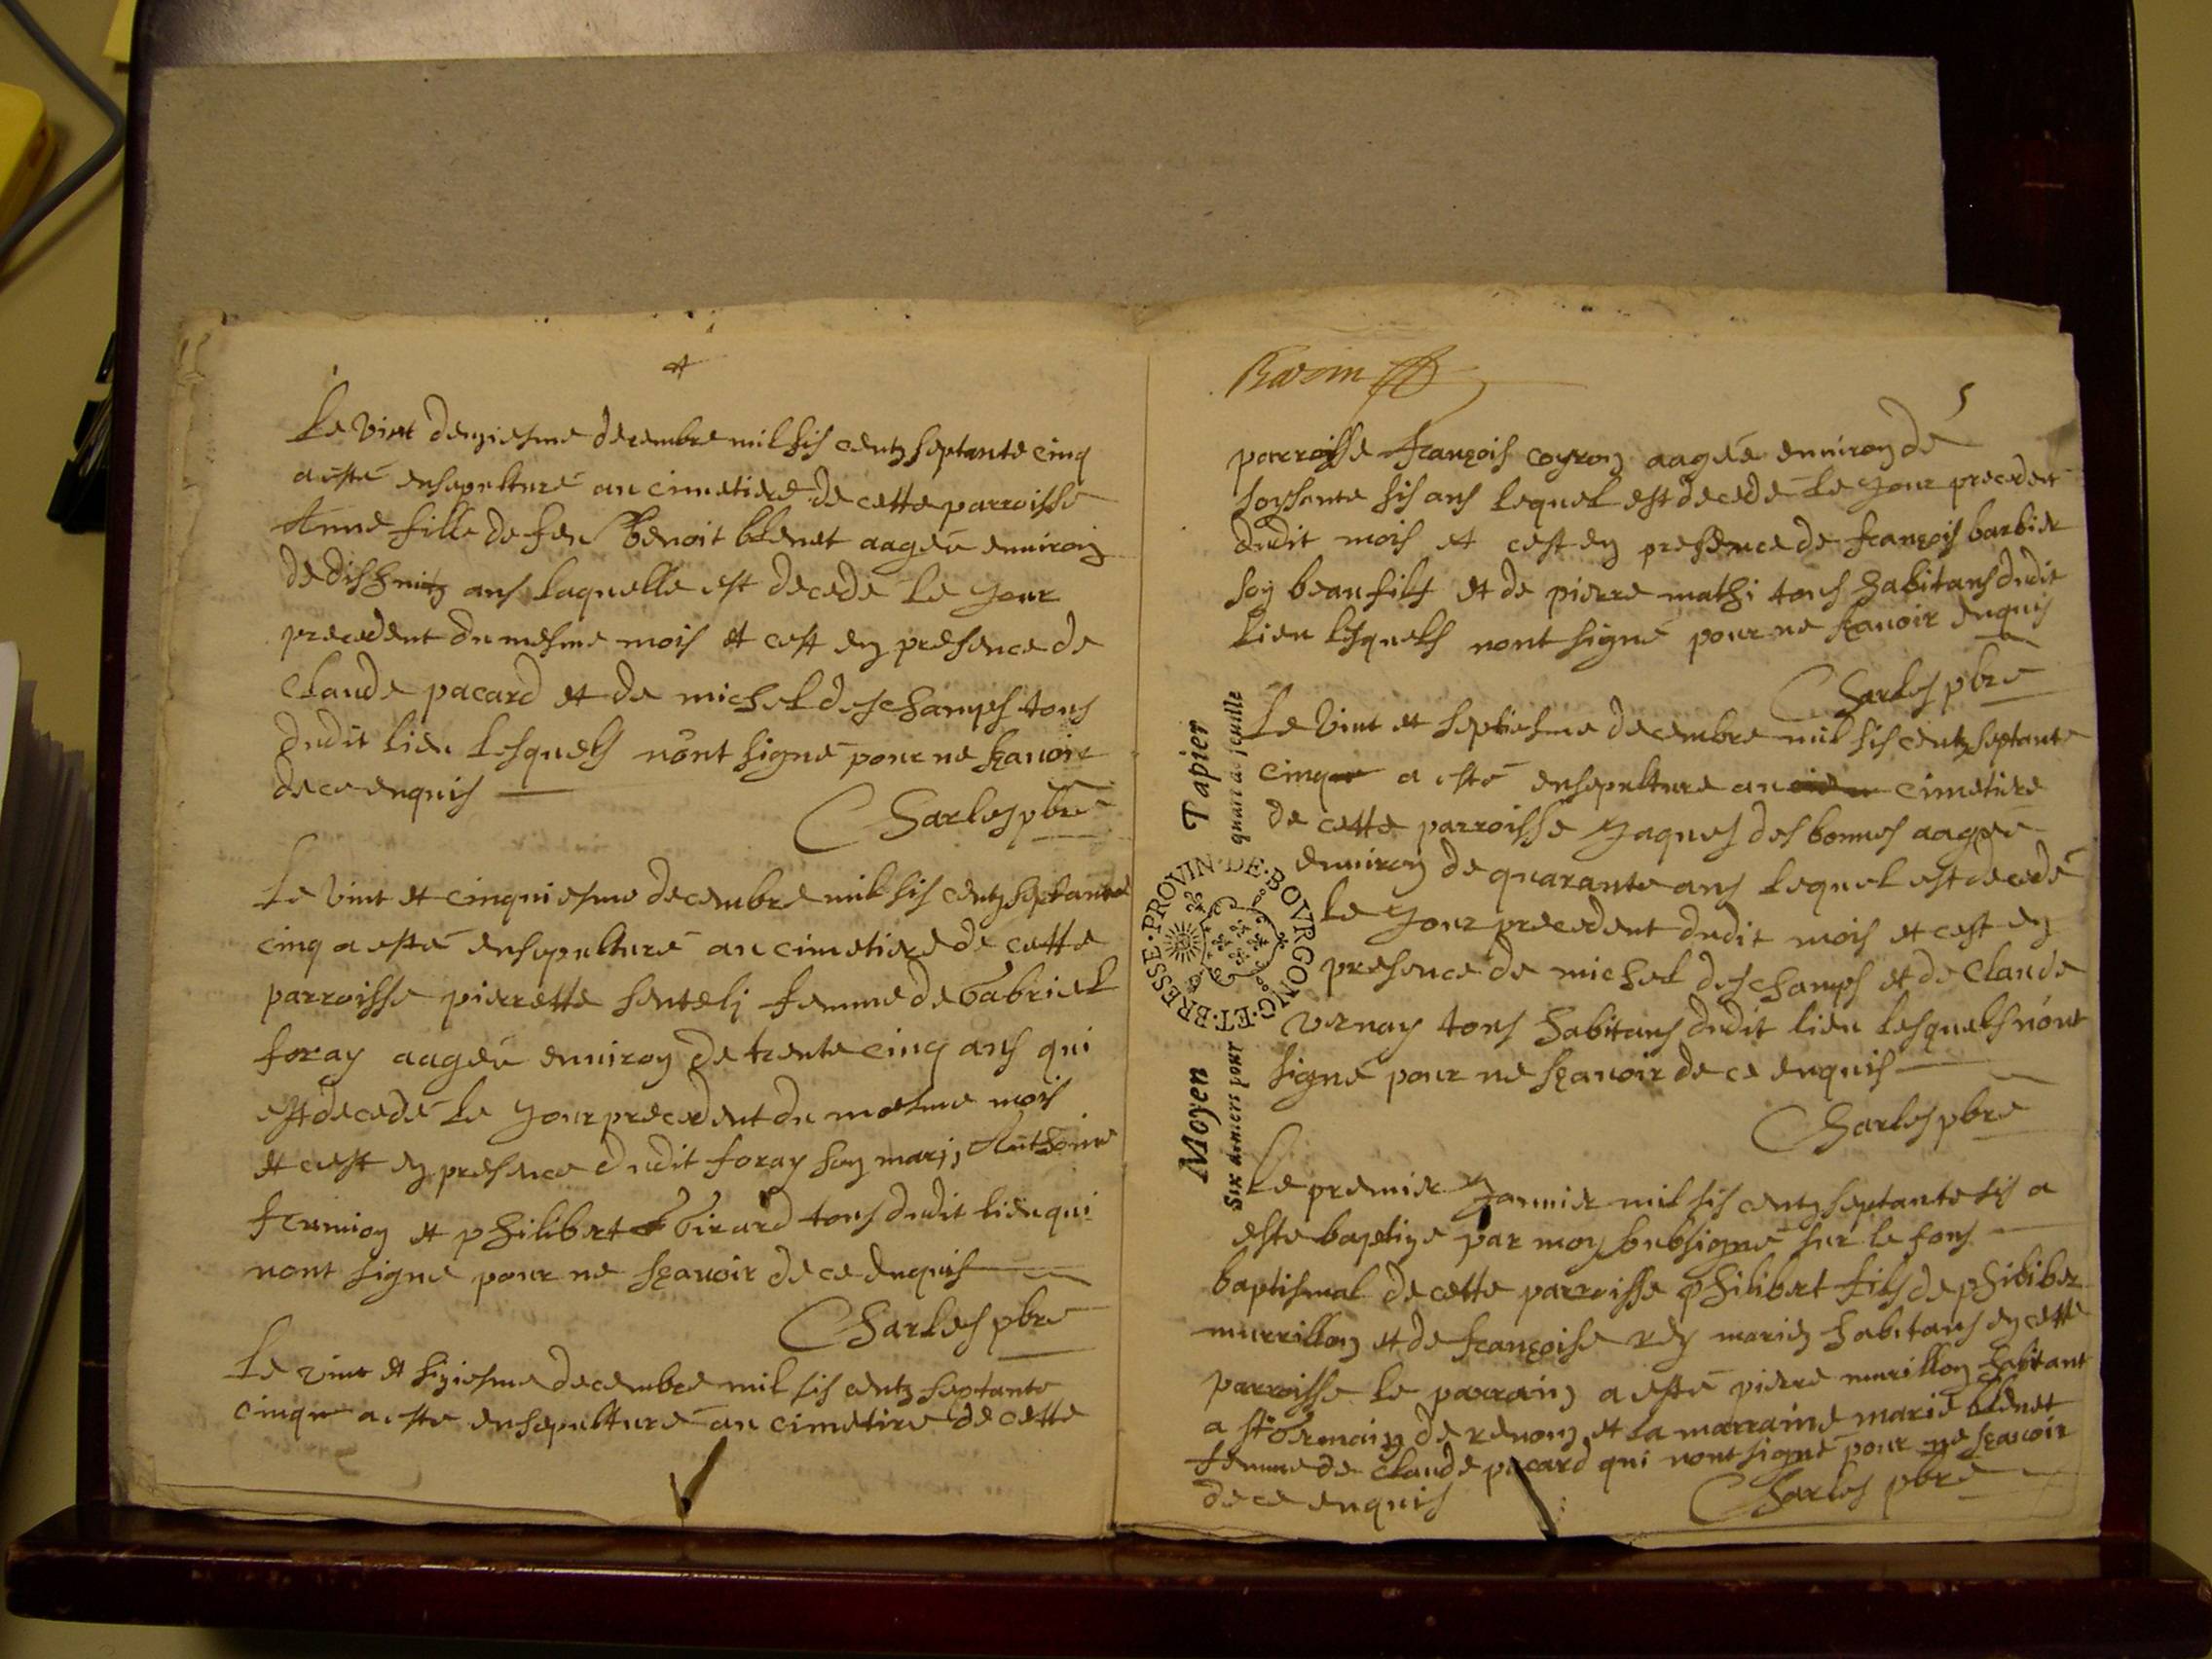 Le vint deuziesme decembre mil sis centz septante cinq
a esté ensepulturé au cimetiere de cette parroisse
Anne fille de feu Benoit blenet aagée enuiron
de dishuitz ans laquelle est decede le jour
precedent du mesme mois et cest en presence de
Claude pacard et de michel deschamps tous
dudit lieu lesquels nont signé pour ne scauoir
de ce enquis
Charles pbre
Le vint et cinquiesme decembre mil sis centz septante
cinq a esté ensepulturé au cimetiere de cette
parroisse pierrette femme de Gabriel
foray aagée enuiron de trente cinq ans qui
est decedé le jour precedent du mesme mois
et cest en presence dudit foray son marj, Anthoine
et philibert Girard tous dudit lieu qui
nont signé pour ne scauoir de ce enquis
Charles pbre
Le vint et siziesme decembre mil sis centz septante
cinq a esté ensepulturé au cimetire de cette
5
parroisse françois coyron aagée enuiron de
soysante sis ans lequel est decede le jour precedent
dudit mois et cest en presence de françois barbier
son beaufils et de pierre mathi tous habitans dudit
lieu lesquels nont signé pour ne scauoir enquis
Charles pbre
Le vint et septiesme decembre mil sis centz septante
cinq a esté ensepulture au cimetiere
de cette parroisse Jaques des bonnes aagée
enuiron de quarante ans lequel est decedé
le jour precedent dudit mois et cest en
presence de michel deschamps et de Claude
vernay tous habitans dudit lieu lesquels nont
signé pour ne scauoir de ce enquis
Charles pbre
Le premier Januier mil sis centz septante sis a
este baptize par moy soubsigné sur le fons
baptismal de cette parroisse philibert fils de philiber
murrillon et de françoise rey mariez habitans en cette
parroisse le parrain a esté pierre murillon habitant
a st Germain de renon et la marraine marie blenet
femme de Claude pacard qui nont signé pour ne scauoir
de ce enquis
Charles pbre
Moyen Papier
Six deniers pour quart de feuille
PROVIN·DE·BOVRGONG·ET·BRESSE·